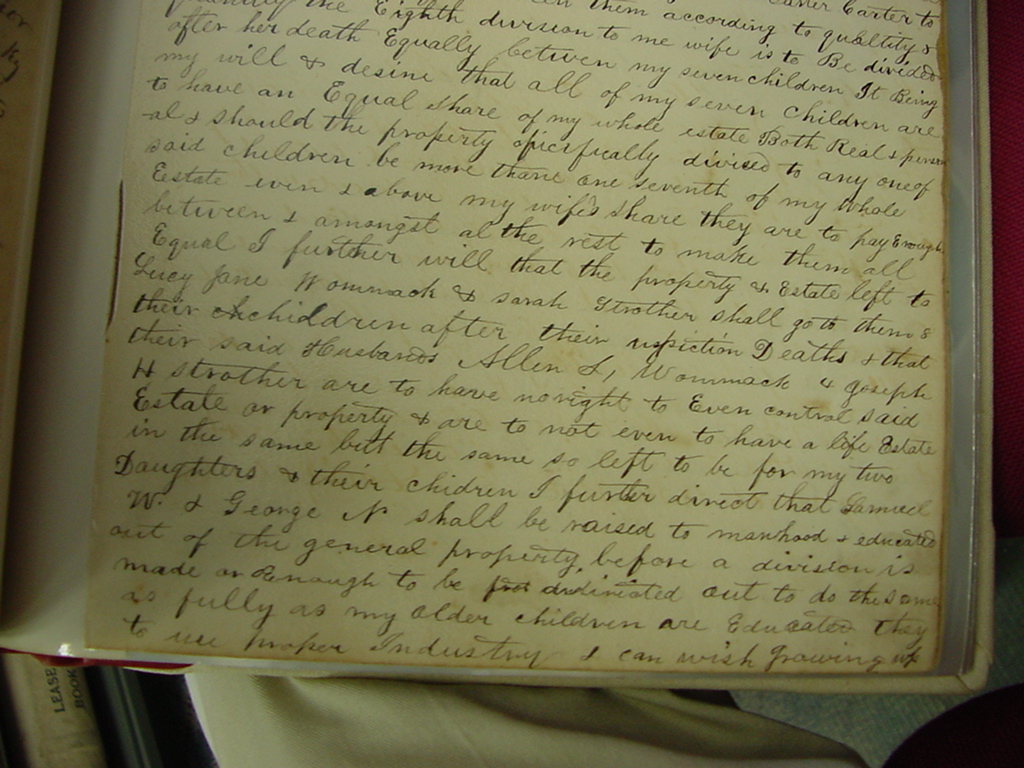 them according to qualtity &
the Eighth division to me wife is to Be divided
after her death Equally between my seven children It Being
my will & desine that all of my seven Children are
to have an Equal share of my whole estate Both Real & person
al & should the property specifically divised to any one of
said children be more thane one seventh of my whole
Estate over & above my wifes share they are to pay Enough
between & amongst al the rest to make them all
Equal I further will that the property & Estate left to
Lucy Jane Wommack & sarah Strother shall go to them &
their chchiddren after their Deaths & that
their said Husbands Allen L, Wommack & goseph
H strother are to have no right to Even control said
Estate or property & are to not even to have a life Estate
in the same butt the same so left to be for my two
Daughters & their chidren I further direct that Samuel
W. & George N shall be raised to manhood & educated
out of the general property before a division is
made or Enough to be out to do the same
as fully as my older children are Educated they
to use proper Industry & can wish growing up
LEASE
BOOK